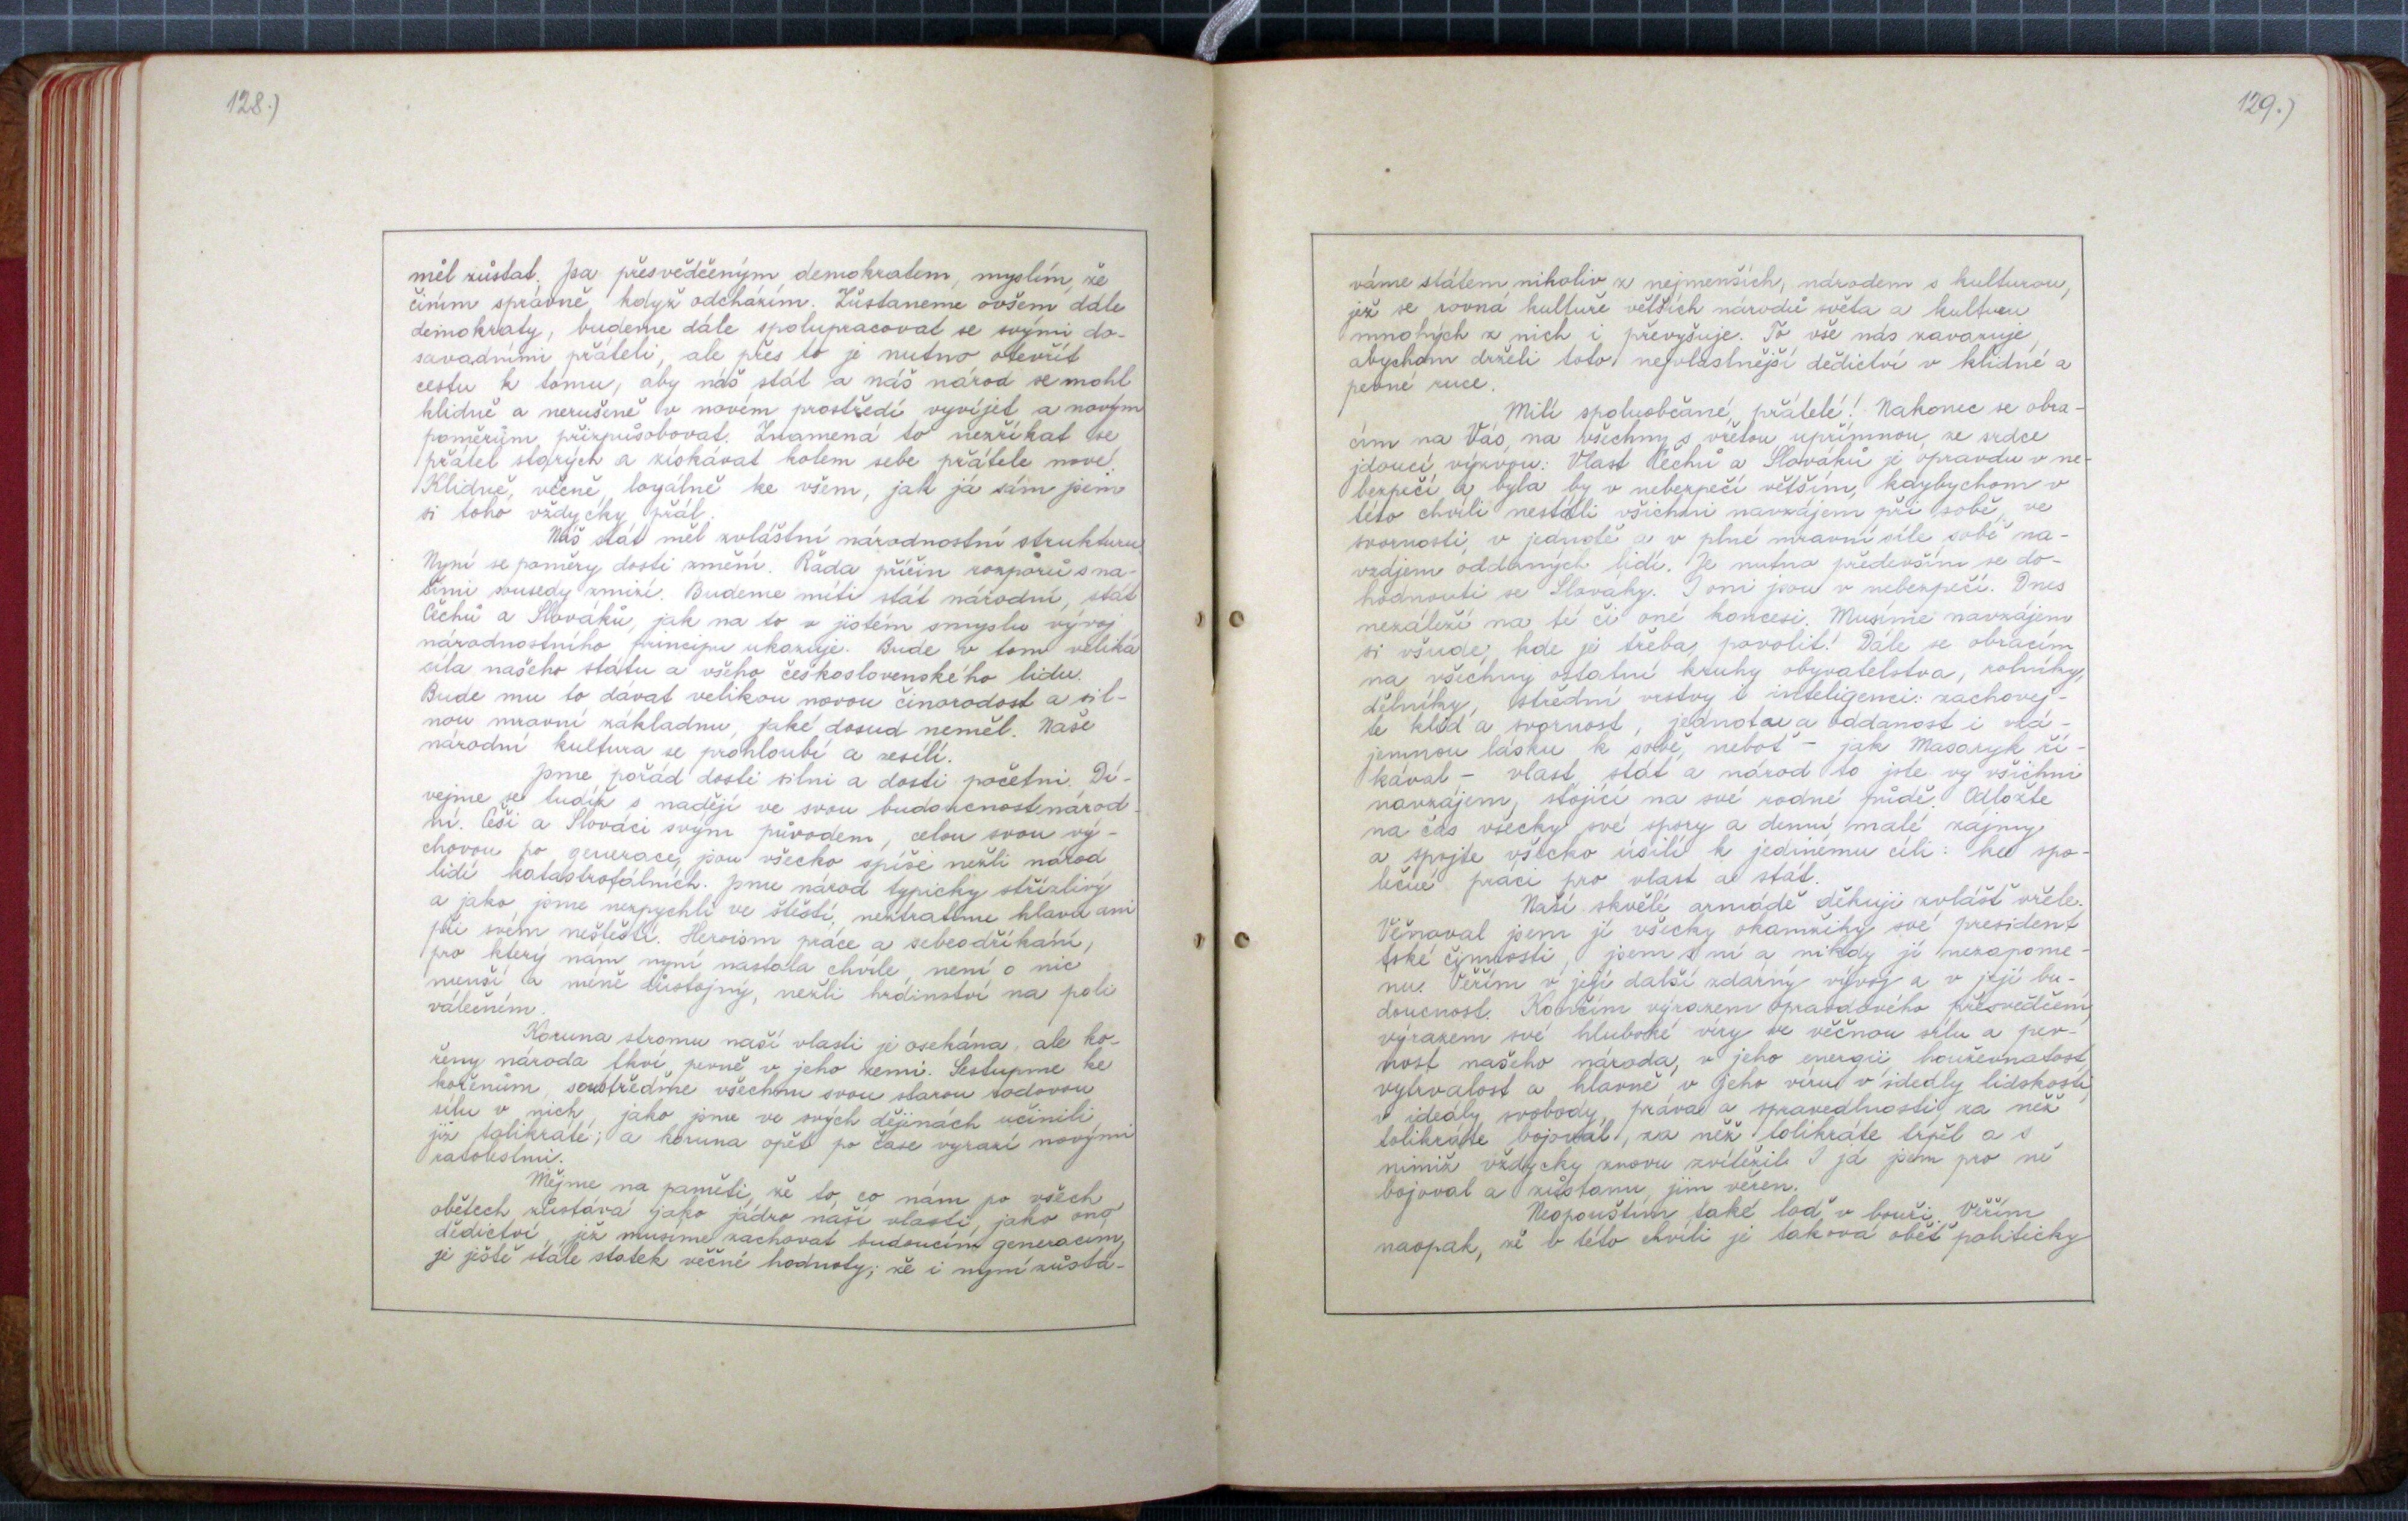 128.)
měl zůstat. Jsa přesvědčeným demokratem, myslím, že
činím správně, když odcházím. Zůstaneme ovšem dále
demokraty, budeme dále spolupracovat se svými do-
savadními přáteli, ale přes to je nutno otevřít
cestu k tomu, aby náš stát a náš národ se mohl
klidně a nerušeně v novém prostředí vyvíjet a novým
poměrům přizpůsobovat. Znamená to nezříkat se
přátel starých a získávat kolem sebe přátele nové.
Klidně, věcně, loyálně ke všem, jak já sám jsem
si toho vždycky přál.
Náš stát měl zvláštní národnostní strukturu
Nyní se poměry dosti změní. Řada příčin rozporů s na-
šimi sousedy zmizí. Budeme míti stát národní, stát
Čechů a Slováků, jak na to v jistém smyslu vývoj
národnostního principu ukazuje. Bude v tom veliká
síla našeho státu a všeho československého lidu.
Bude mu to dávat velikou novou činorodost a sil-
nou mravní základnu, jaké dosud neměl. Naše
národní kultura se prohloubí a zesílí.
Jsme pořád dosti silni a dosti početni. Dí-
vejme se tudíž s nadějí ve svou budoucnost národ-
ní. Češi a Slováci svým původem, celou svou vý-
chovou po generace, jsou všecko spíše nežli národ
lidí katastrofálních. Jsme národ typicky střízlivý
a jako jsme nezpychli ve štěstí, neztratíme hlavu ani
při svém neštěstí. Heroism práce a sebeodříkání,
pro který nám nyní nastala chvíle, není o nic
menší a méně důstojný, nežli hrdinství na poli
válečném.
Koruna stromu naší vlasti je osekána, ale ko-
řeny národa tkví pevně v jeho zemi. Sestupme ke
kořenům, soustřeďme všechnu svou starou rodovou
sílu v nich, jako jsme ve svých dějinách učinili
již tolikráte; a koruna opět po čase vyrazí novými
ratolestmi.
Mějme na paměti, že to, co nám po všech
obětech zůstává jako jádro naší vlasti, jako ono
dědictví, jež musíme zachovat budoucím generacím,
je ještě stále statek věčné hodnoty; že i nyní zůstá-
129.)
váme státem nikoliv z nejmenších, národem s kulturou,
jež se rovná kultuře větších národů světa a kulturu
mnohých z nich i převyšuje. To vše nás zavazuje,
abychom drželi toto nejvlastnější dědictví v klidné a
pevné ruce.
Milí spoluobčané, přátelé! Nakonec se obra-
cím na Vás, na všechny s vřelou upřímnou, ze srdce
jdoucí výzvou: Vlast Čechů a Slováků je opravdu v ne-
bezpečí a byla by v nebezpečí větším, kdybychom v
této chvíli nestáli všichni navzájem při sobě, ve
svornosti, v jednotě a v plné mravní síle sobě na-
vzájem oddaných lidí. Je nutno především se do-
hodnouti se Slováky. I oni jsou v nebezpečí. Dnes
nezáleží na té či oné koncesi. Musíme navzájem
si všude, kde je třeba, povolit! Dále se obracím
na všechny ostatní kruhy obyvatelstva, rolníky,
dělníky, střední vrstvy i inteligenci: zachovej-
te klid a svornost, jednotu a oddanost i vzá-
jemnou lásku k sobě, neboť - jak Masaryk ří-
kával - vlast, stát a národ to jste vy všichni
navzájem, stojící na své rodné půdě. Odložte
na čas všecky své spory a denní malé zájmy
a spojte všecko úsilí k jedinému cíli: ke spo-
lečné práci pro vlast a stát.
Naší skvělé armádě děkuji zvlášť vřele.
Věnoval jsem jí všecky okamžiky své president
tské činnosti, jsem s ní a nikdy jí nezapome-
nu. Věřím v její další zdárný vývoj a v její bu-
doucnost. Končím výrazem opravdového přesvědčení,
výrazem své hluboké víry ve věčnou sílu a pev-
nost našeho národa, v jeho energii, houževnatost,
vytrvalost a hlavně v jeho víru v ideály lidskosti,
v ideály svobody, práva a spravedlnosti, za něž
tolikráte bojoval, za něž tolikráte trpěl a s
nimiž vždycky znovu zvítězil. I já jsem pro ně
bojoval a zůstanu jim věren.
Neopouštím také loď v bouři. Věřím
naopak, že v této chvíli je taková oběť politicky